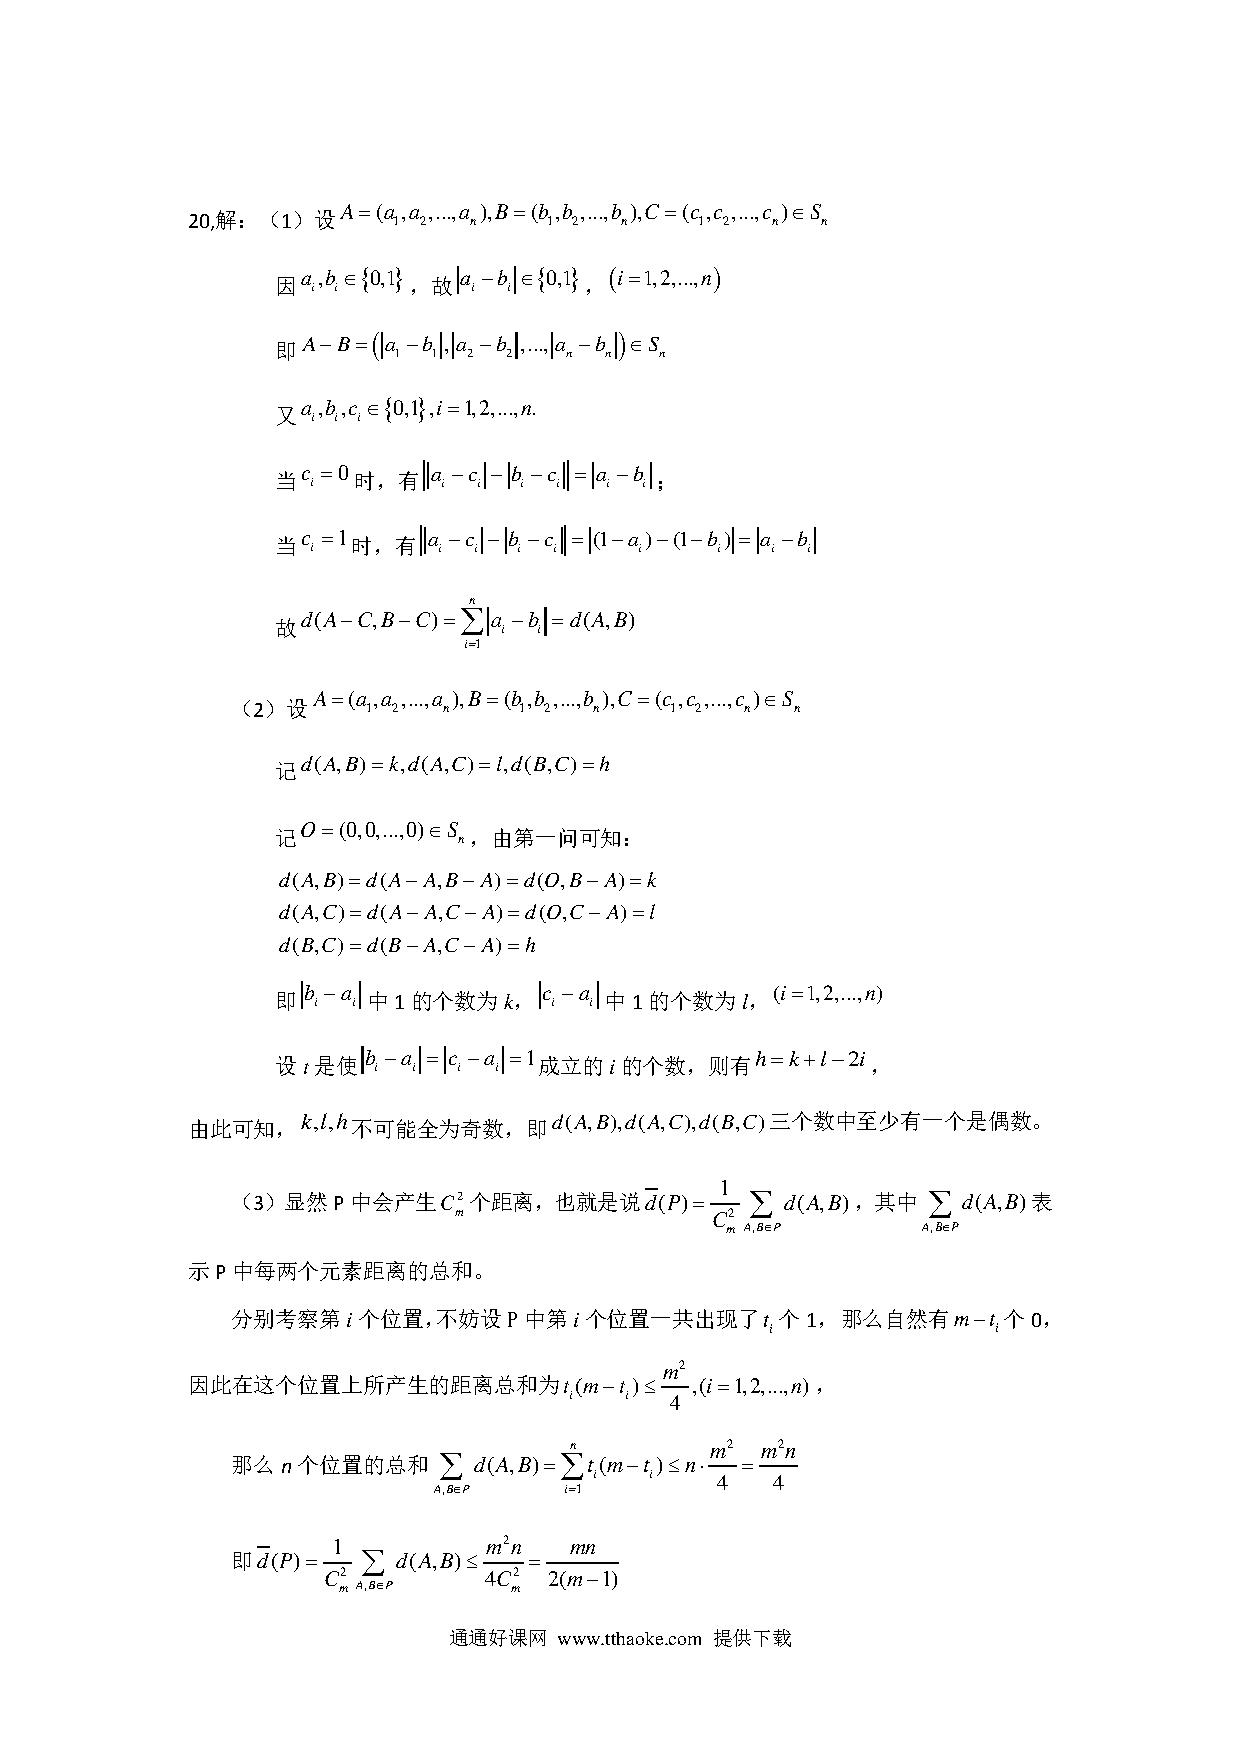 20,解：（1）设 A=(a₁,a₂,...,aₙ),B=(b₁,b₂,...,bₙ),C=(c₁,c₂,...,cₙ)∈Sₙ
因 aᵢ,bᵢ∈{0,1}，故 |aᵢ−bᵢ|∈{0,1}，(i=1,2,...,n)
即 A−B=(|a₁−b₁|,|a₂−b₂|,...,|aₙ−bₙ|)∈Sₙ
又 aᵢ,bᵢ,cᵢ∈{0,1},i=1,2,...,n.
当 cᵢ=0 时，有 ||aᵢ−cᵢ|−|bᵢ−cᵢ||=|aᵢ−bᵢ|；
当 cᵢ=1 时，有 ||aᵢ−cᵢ|−|bᵢ−cᵢ||=|(1−aᵢ)−(1−bᵢ)|=|aᵢ−bᵢ|
故 d(A−C,B−C)=∑_{i=1}^{n}|aᵢ−bᵢ|=d(A,B)
（2）设 A=(a₁,a₂,...,aₙ),B=(b₁,b₂,...,bₙ),C=(c₁,c₂,...,cₙ)∈Sₙ
记 d(A,B)=k,d(A,C)=l,d(B,C)=h
记 O=(0,0,...,0)∈Sₙ，由第一问可知：
d(A,B)=d(A−A,B−A)=d(O,B−A)=k
d(A,C)=d(A−A,C−A)=d(O,C−A)=l
d(B,C)=d(B−A,C−A)=h
即 |bᵢ−aᵢ| 中 1 的个数为 k，|cᵢ−aᵢ| 中 1 的个数为 l，(i=1,2,...,n)
设 t 是使 |bᵢ−aᵢ|=|cᵢ−aᵢ|=1 成立的 i 的个数，则有 h=k+l−2i，
由此可知，k,l,h 不可能全为奇数，即 d(A,B),d(A,C),d(B,C) 三个数中至少有一个是偶数。
（3）显然 P 中会产生 C_m^2 个距离，也就是说 d̅(P)=\frac{1}{C_m^2}∑_{A,B∈P} d(A,B)，其中 ∑_{A,B∈P} d(A,B) 表
示 P 中每两个元素距离的总和。
分别考察第 i 个位置，不妨设 P 中第 i 个位置一共出现了 tᵢ 个 1，那么自然有 m−tᵢ 个 0，
因此在这个位置上所产生的距离总和为 tᵢ(m−tᵢ)≤\frac{m^2}{4},(i=1,2,...,n)，
那么 n 个位置的总和 ∑_{A,B∈P} d(A,B)=∑_{i=1}^{n} tᵢ(m−tᵢ)≤n·\frac{m^2}{4}=\frac{m^2n}{4}
即 d̅(P)=\frac{1}{C_m^2}∑_{A,B∈P} d(A,B)≤\frac{m^2n}{4C_m^2}=\frac{mn}{2(m−1)}
通通好课网 www.tthaoke.com 提供下载